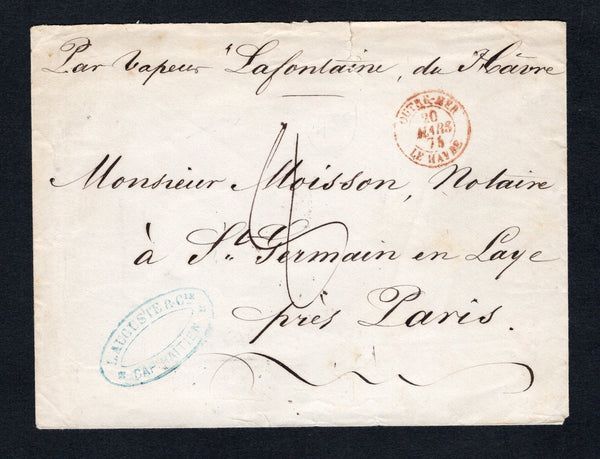 Par Vapeur "Lafontaine, du Hâvre
OUTRE-MER
20
MARS
75
LE HAVRE
Monsieur Moisson, Notaire
à St. Germain en Laye
près Paris.
L. AUGUSTE & CIE
CAP-HAITIEN